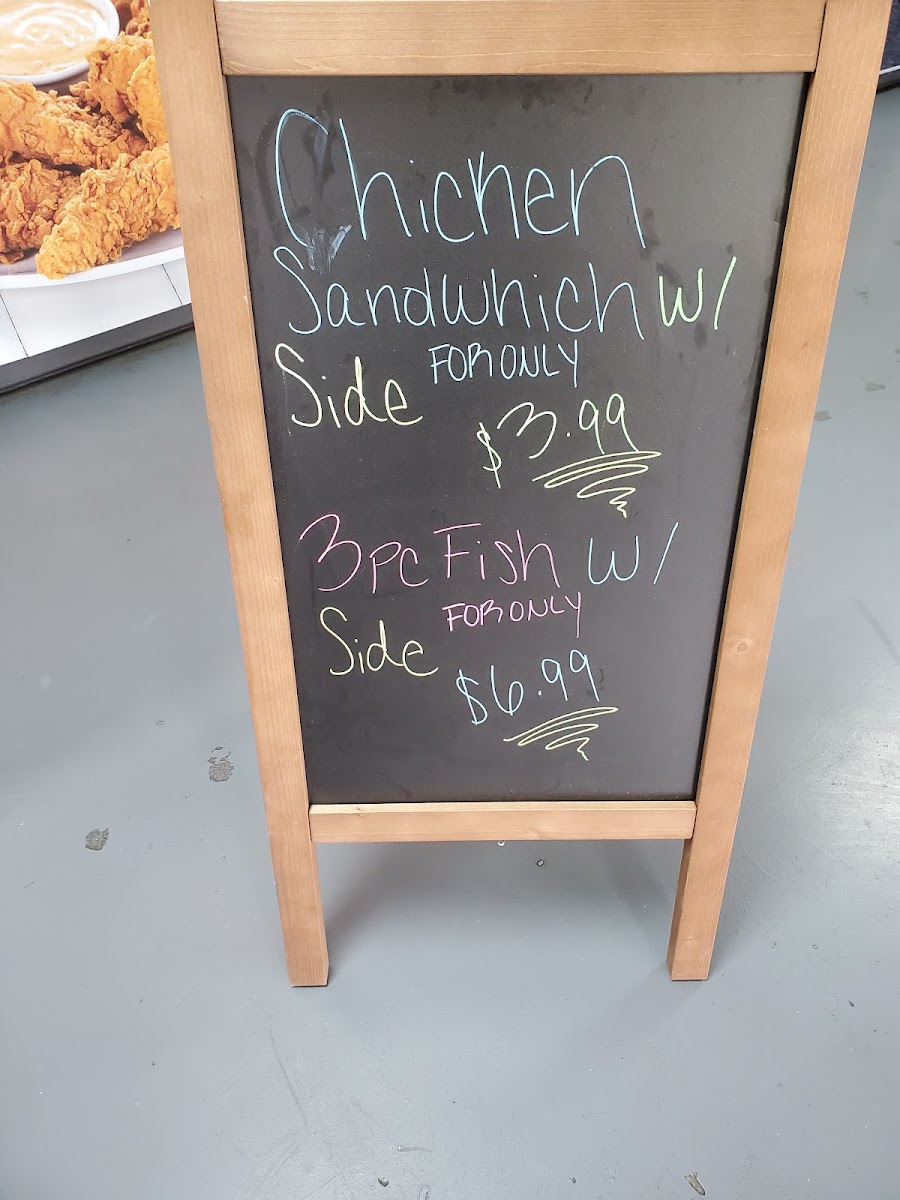 Chicken
Sandwhich w/
Side FOR ONLY
$3.99
3pc Fish w/
Side FOR ONLY
$6.99